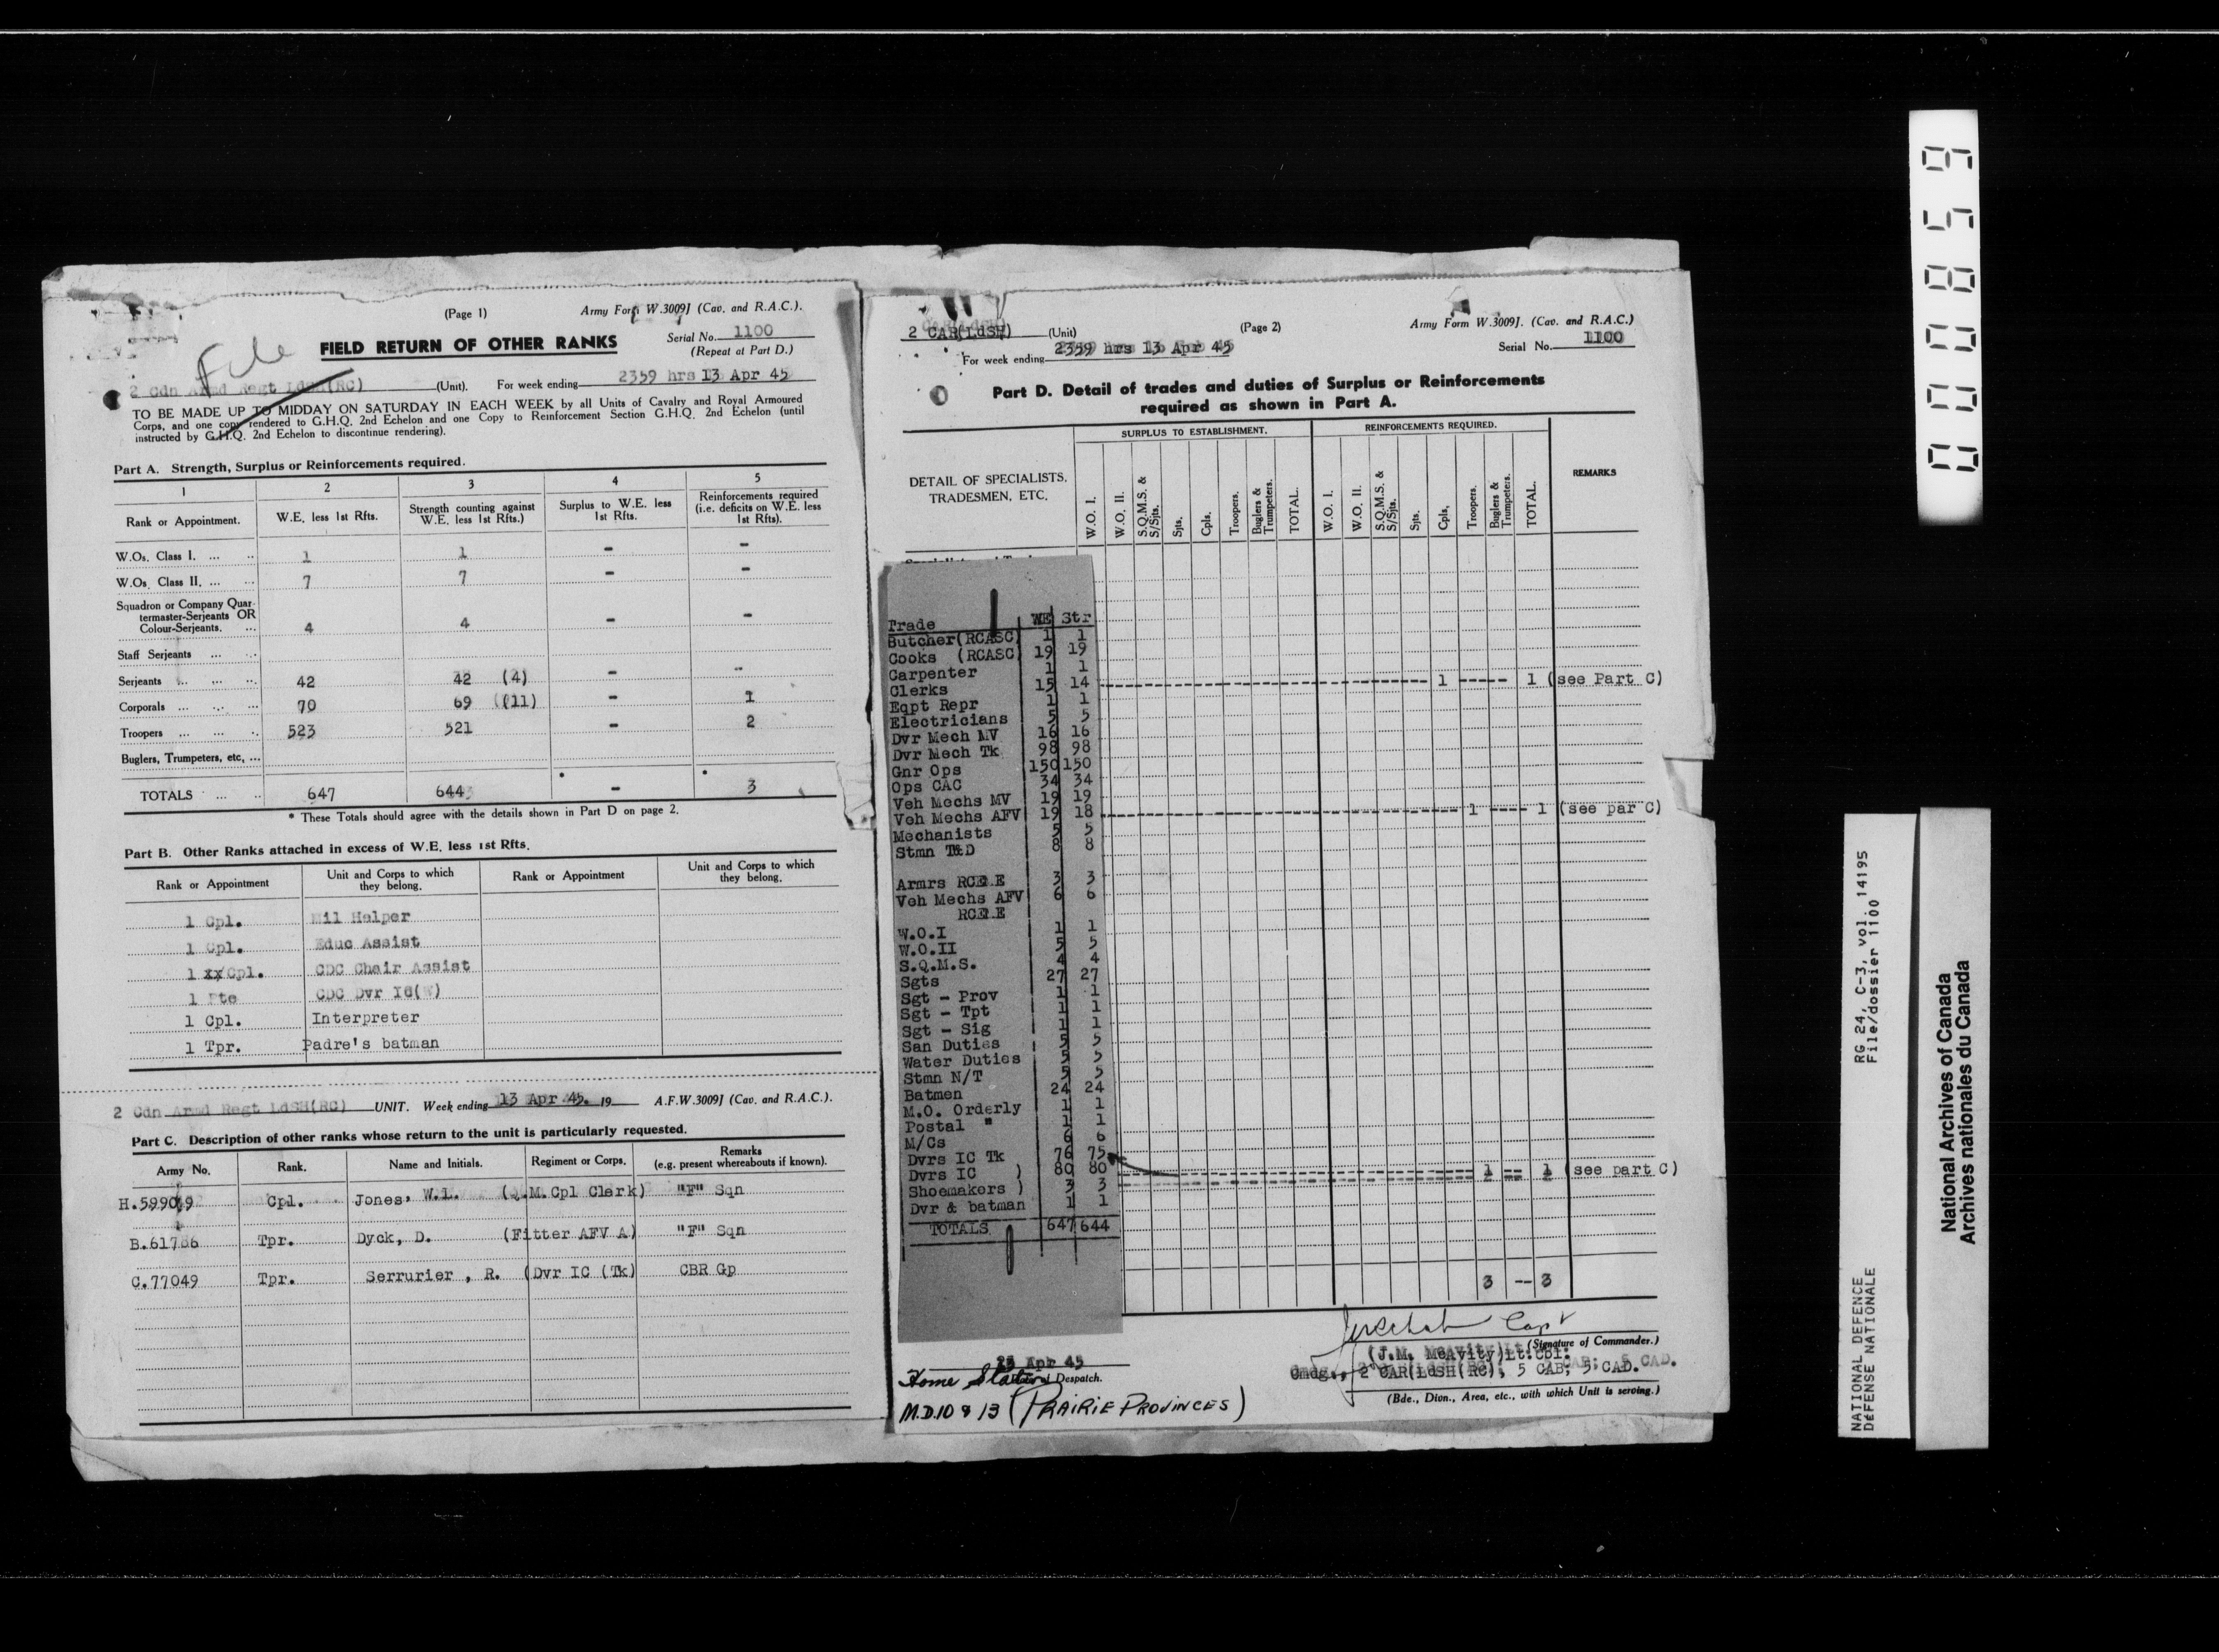 (Page 1)
Army Form W.3009J (Cav. and R.A.C.).
File
FIELD RETURN OF OTHER RANKS
Serial No. 1100
(Repeat at Part D.)
2 Cdn Armd Regt LdSH(RC) (Unit). For week ending 2359 hrs 13 Apr 45
TO BE MADE UP TO MIDDAY ON SATURDAY IN EACH WEEK by all Units of Cavalry and Royal Armoured
Corps, and one copy rendered to G.H.Q. 2nd Echelon and one Copy to Reinforcement Section G.H.Q. 2nd Echelon (until
instructed by G.H.Q. 2nd Echelon to discontinue rendering).
Part A. Strength, Surplus or Reinforcements required.
1 2 3 4 5
Rank or Appointment. W.E. less 1st Rfts. Strength counting against W.E. less 1st Rfts.) Surplus to W.E. less 1st Rfts. Reinforcements required (i.e. deficits on W.E. less 1st Rfts).
W.Os. Class I. ... .. 1 1 - -
W.Os. Class II. ... ... 7 7 - -
Squadron or Company Quar-
termaster-Serjeants OR
Colour-Serjeants. ... 4 4 - -
Staff Serjeants ... ...
Serjeants ... ... ... 42 42 (4) - --
Corporals ... ... ... 70 69 (11) - 1
Troopers ... ... .. 523 521 - 2
Buglers, Trumpeters, etc, ...
TOTALS ... .. 647 644 * - * 3
* These Totals should agree with the details shown in Part D on page 2.
Part B. Other Ranks attached in excess of W.E. less 1st Rfts.
Rank or Appointment Unit and Corps to which they belong. Rank or Appointment Unit and Corps to which they belong.
1 Cpl. Mil Halper
1 Cpl. Educ Assist
1 xx/Cpl. CDC Chair Assist
1 Pte CDC Dvr IC(W)
1 Cpl. Interpreter
1 Tpr. Padre's batman
2 Cdn Armd Regt LdSH(RC) UNIT. Week ending 13 Apr 45. 19 A.F.W.3009J (Cav. and R.A.C.).
Part C. Description of other ranks whose return to the unit is particularly requested.
Army No. Rank. Name and Initials. Regiment or Corps. Remarks (e.g. present whereabouts if known).
H.599049 Cpl. Jones, W.L. (Q.M.Cpl Clerk) "F" Sqn
B.61786 Tpr. Dyck, D. (Fitter AFV A) "F" Sqn
C.77049 Tpr. Serrurier , R. (Dvr IC (Tk) CBR Gp
2 CAR(LdSH) (Unit)
(Page 2)
Army Form W.3009J. (Cav. and R.A.C.)
For week ending 2359 hrs 13 Apr 45
Serial No. 1100
Part D. Detail of trades and duties of Surplus or Reinforcements
required as shown in Part A.
SURPLUS TO ESTABLISHMENT. REINFORCEMENTS REQUIRED.
DETAIL OF SPECIALISTS, TRADESMEN, ETC. W.O. I. W.O. II. S.Q.M.S. & S/Sjts. Sjts. Cpls. Troopers. Buglers & Trumpeters. TOTAL. W.O. I. W.O. II. S.Q.M.S. & S/Sjts. Sjts. Cpls. Troopers. Buglers & Trumpeters. TOTAL. REMARKS
Trade WE Str
Butcher(RCASC) 1 1
Cooks (RCASC) 19 19
Carpenter 1 1
Clerks 15 14 1 1 (see Part C)
Eqpt Repr 1 1
Electricians 5 5
Dvr Mech MV 16 16
Dvr Mech Tk 98 98
Gnr Ops 150 150
Ops CAC 34 34
Veh Mechs MV 19 19
Veh Mechs AFV 19 18 1 1 (see par C)
Mechanists 5 5
Stmn T&D 8 8
Armrs RCEME 3 3
Veh Mechs AFV 6 6
RCEME
W.O.I 1 1
W.O.II 5 5
S.Q.M.S. 4 4
Sgts 27 27
Sgt - Prov 1 1
Sgt - Tpt 1 1
Sgt - Sig 1 1
San Duties 5 5
Water Duties 5 5
Stmn N/T 5 5
Batmen 24 24
M.O. Orderly 1 1
Postal " 1 1
M/Cs 6 6
Dvrs IC Tk 76 75 1 -- 1 (see part C)
Dvrs IC ) 80 80
Shoemakers ) 3 3
Dvr & batman 1 1
TOTALS 647 644
3 -- 3
Capt
(Signature of Commander.)
(J.M. McAvity)Lt.Col.
Cmdg., 2 CAR(LdSH(RC), 5 CAB, 5 CAD.
(Bde., Divn., Area, etc., with which Unit is serving.)
Apr 45
Despatch.
Home Station
M.D.10 & 13 (PRAIRIE PROVINCES)
0000859
RG 24, C-3, vol. 14195
File/dossier 1100
NATIONAL DEFENCE
DÉFENSE NATIONALE
National Archives of Canada
Archives nationales du Canada